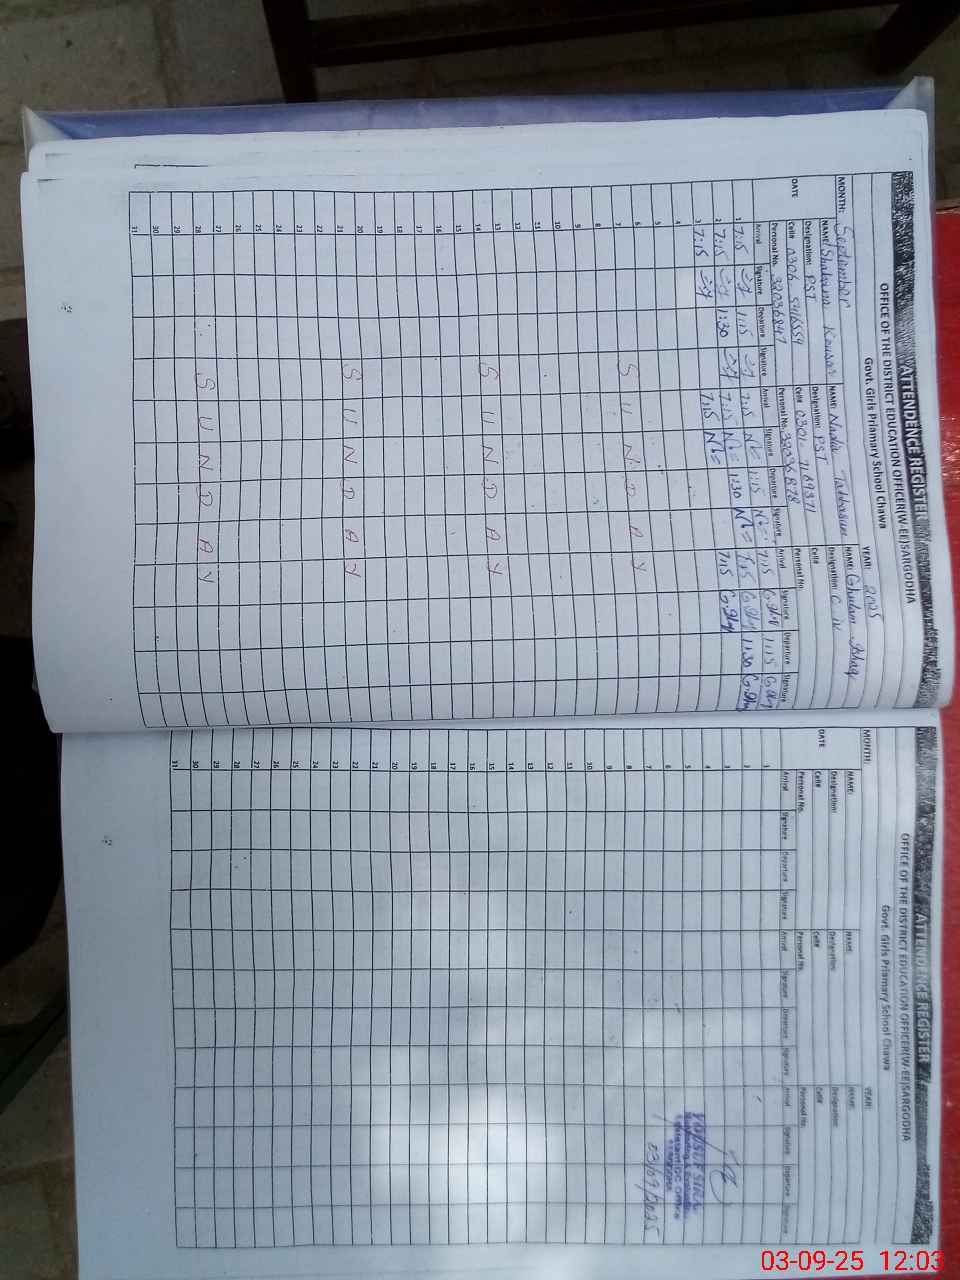 ATTENDENCE REGISTER
OFFICE OF THE DISTRICT EDUCATION OFFICER(W-EE)SARGODHA
Govt. Girls Priamary School Chawa
MONTH: September YEAR: 2025
DATE
NAME: Shabana Kousar NAME: Nadia Tabbasum NAME: Ghulam Ishaq
Designation: PST Designation: PST Designation: C IV
Cell# 0306-5416559 Cell# 0301-7169371 Cell#
Personal No. 32036847 Personal No. 32036878 Personal No.
Arrival Signature Departure Signature Arrival Signature Departure Signature Arrival Signature Departure Signature
1 7:15 1:15 7:15 1:15 7:15 1:15
2 7:15 1:30 7:15 1:30 7:15 1:30
3 7:15 7:15 7:15
4
5
6
7 S U N D A Y
8
9
10
11
12
13
14 S U N D A Y
15
16
17
18
19
20
21 S U N D A Y
22
23
24
25
26
27
28 S U N D A Y
29
30
31
ATTENDENCE REGISTER
OFFICE OF THE DISTRICT EDUCATION OFFICER(W-EE)SARGODHA
Govt. Girls Priamary School Chawa
MONTH: YEAR:
DATE
NAME: NAME: NAME:
Designation: Designation: Designation:
Cell# Cell# Cell#
Personal No. Personal No. Personal No.
Arrival Signature Departure Signature Arrival Signature Departure Signature Arrival Signature Departure Signature
1
2
3
4
5
6
7
8
9
10
11
12
13
14
15
16
17
18
19
20
21
22
23
24
25
26
27
28
29
30
31
03/09/2025
03-09-25 12:03